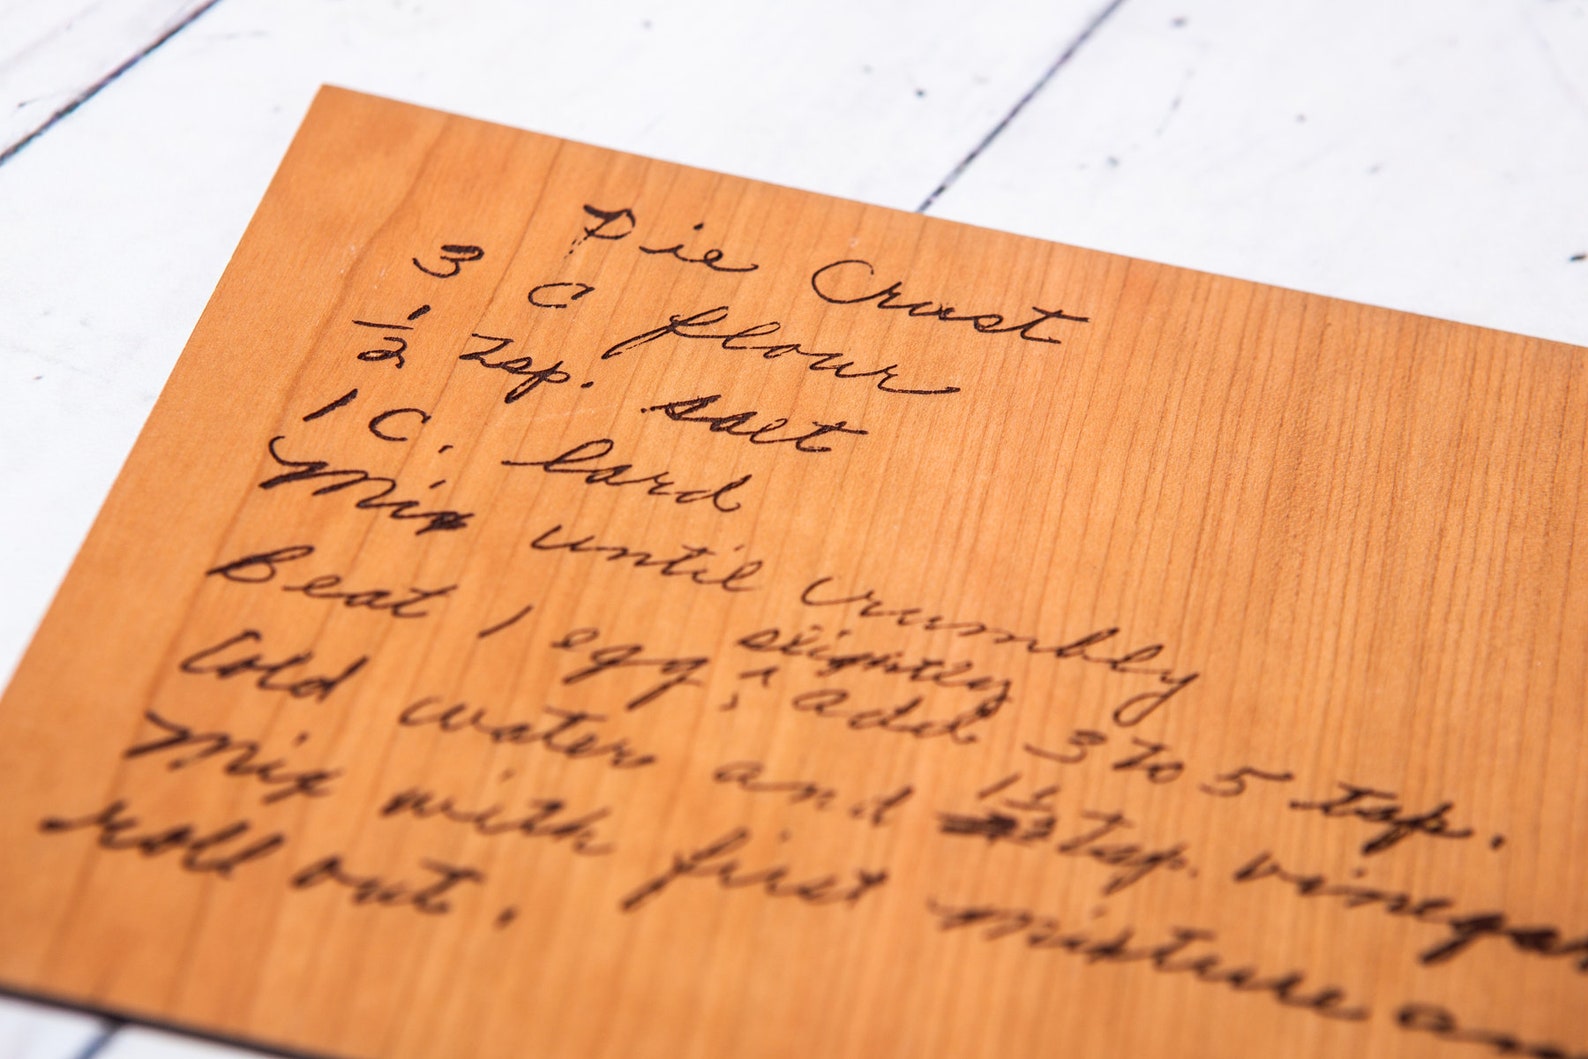 Pie Crust
3 C flour
1/2 tsp. salt
1 C. lard
Mix until crumbly
Beat 1 egg slightly, add 3 to 5 tsp.
Cold water and 1 1/2 tsp. vinegar
Mix with first mixture an
roll out.